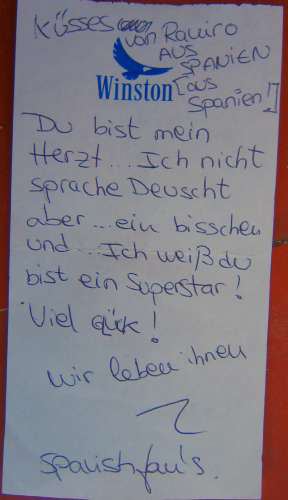 Küsses von Ramiro
AUS
SPANIEN
[aus
Spanien!]
Winston
Du bist mein
Herzt... Ich nicht
sprache Deuscht
aber... ein bisschen
und... Ich weiß du
bist ein Superstar!
Viel Glück!
wir leben ihnen
Spanish fan's.